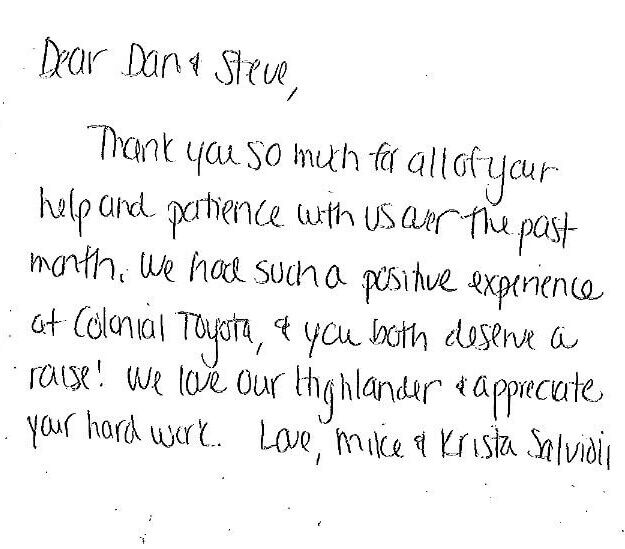 Dear Dan & Steve,
Thank you so much for all of your
help and patience with us over the past
month. We had such a positive experience
at Colonial Toyota, & you both deserve a
raise! We love our Highlander & appreciate
your hard work. Love, Mike & Krista